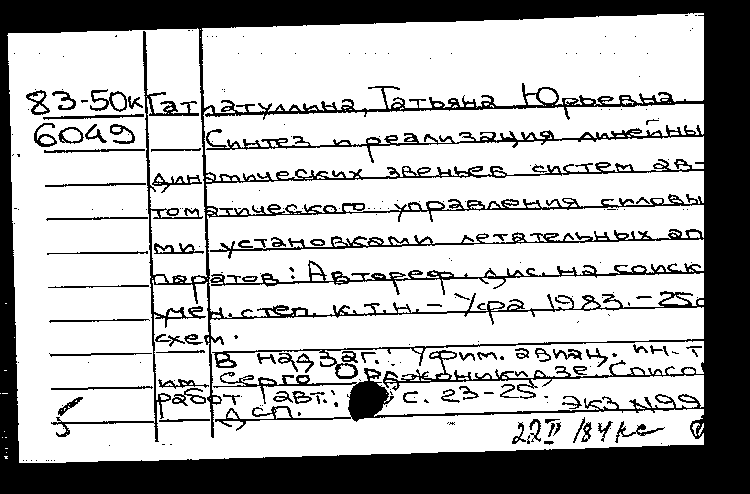 83-50к Гатиатуллина, Татьяна Юрьевна.
6049 Синтез и реализация линейны
динамических звеньев систем ав-
томатического управления силовы
ми установками летательных ап
паратов: Автореф. дис. на соиск
учен. степ. к.т.н. – Уфа, 1983. – 25с
схем.
В надзаг.: Уфим. авиац. ин-т
им. Серго Орджоникидзе. Списо
работ авт.: с. 23-25.
ДСП. экз №99